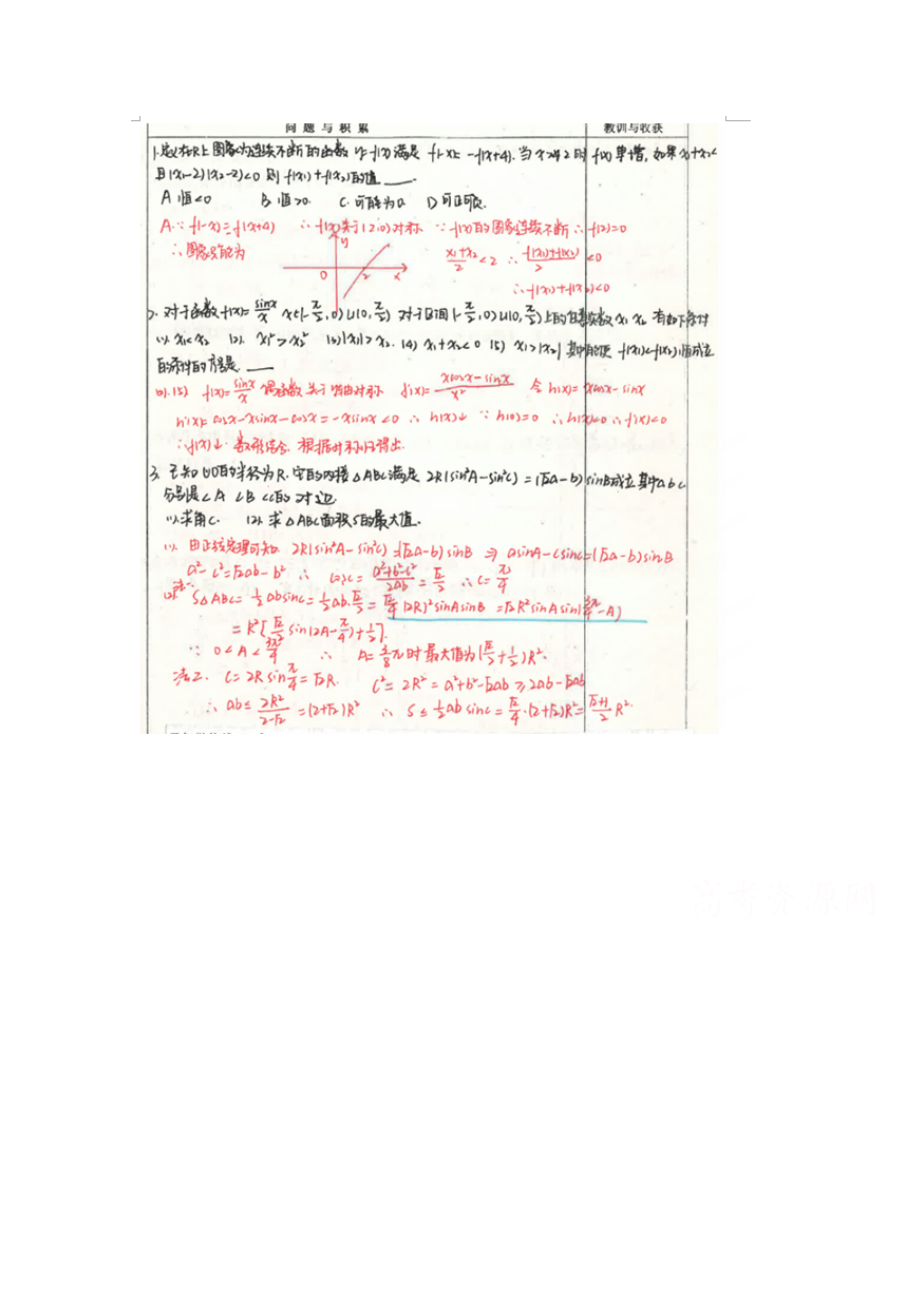 问题与积累 教训与收获
1.定义在R上图象为连续不断的函数 y=f(x)满足 f(-x)=-f(x+4). 当x>2时 f(x)单增, 如果x₁+x₂<
且(x₁-2)(x₂-2)<0 则 f(x₁)+f(x₂)的值 ___.
A 恒<0 B. 恒>0. C. 可能为0 D 可正可负.
A.∵ f(-x)=-f(x+4) ∴f(x)关于(2,0)对称 ∵f(x)的图象连续不断 ∴f(2)=0
∴图象只能为
y
O 2 x
x₁+x₂/2<2 ∴ f(x₁)+f(x₂)/2 <0
∴f(x₁)+f(x₂)<0
2. 对于函数f(x)=sinx/x x∈[-π/2,0)∪(0,π/2) 对于区间[-π/2,0)∪(0,π/2)上的任意实数x₁ x₂ 有如下条件
(1) x₁<x₂ (2). x₁²>x₂² (3)|x₁|>x₂. (4) x₁+x₂<0 (5) x₁>|x₂| 其中能使 f(x₁)<f(x₂)恒成立
的条件的序号是 ___
(2).(5) f(x)=sinx/x 偶函数 关于y轴对称 f'(x)=xcosx-sinx/x² 令h(x)=xcosx-sinx
h'(x)=cosx-xsinx-cosx=-xsinx<0 ∴ h(x)↓ ∵h(0)=0 ∴h(x)<0 ∴f'(x)<0
∴f(x)↓ 数形结合. 根据对称性得出.
3. 已知⊙O的半径为R. 它的内接△ABC满足 2R(sin²A-sin²C)=(√2a-b)sinB成立 其中a b c
分别是∠A ∠B ∠C的对边.
(1).求角C. (2). 求△ABC面积S的最大值.
(1). 由正弦定理可知 2R(sin²A-sin²C)=(√2a-b)sinB ⇒ asinA-csinC=(√2a-b)sinB
a²-c²=√2ab-b² ∴ cosC=a²+b²-c²/2ab=√2/2 ∴C=π/4
(2) 法一. S△ABC=1/2absinC=1/2ab·√2/2=√2/4(2R)²sinAsinB=√2R²sinAsin(3π/4-A)
=R²[√2/2sin(2A-π/4)+1/2].
∵ 0<A<3π/4 ∴ A=3/8π时 最大值为(√2/2+1/2)R².
法2. C=2Rsinπ/4=√2R. C²=2R²=a²+b²-√2ab≥2ab-√2ab
∴ab≤2R²/2-√2=(2+√2)R² ∴ S≤1/2absinC=√2/4·(2+√2)R²=√2+1/2R².
高考资源网